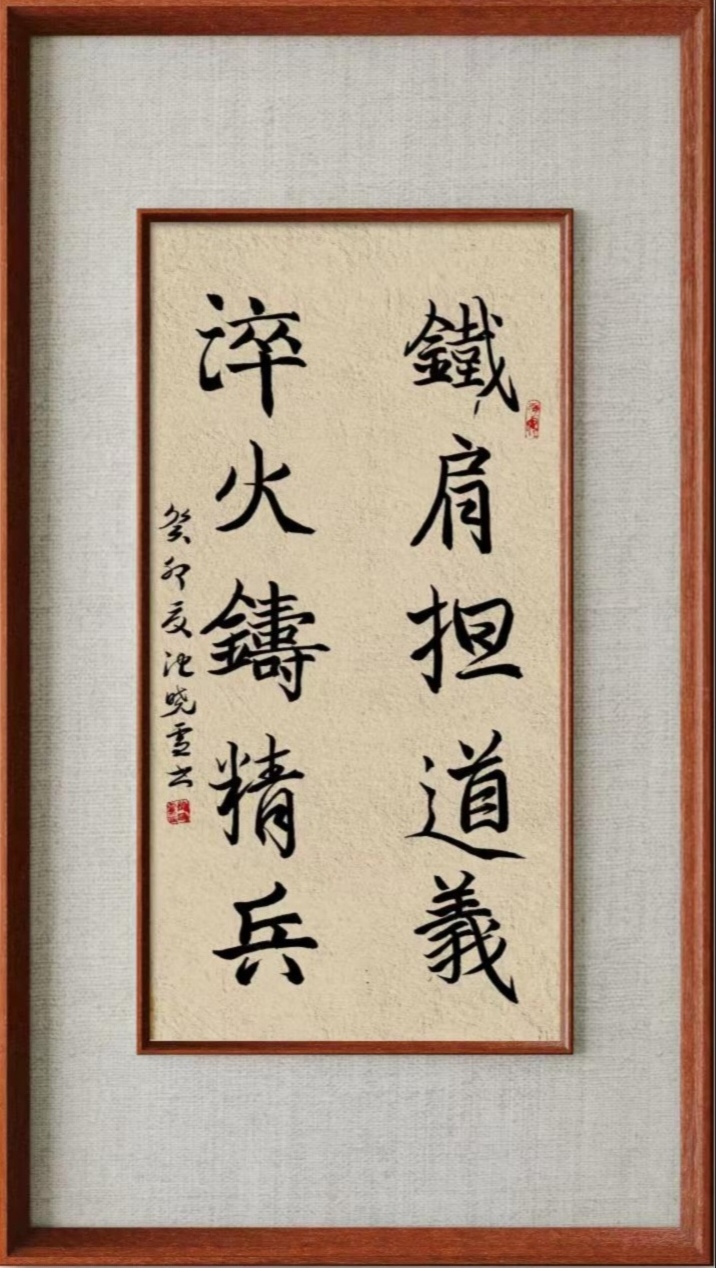 鐵肩担道義
淬火鑄精兵
癸卯夏沈晓雪书